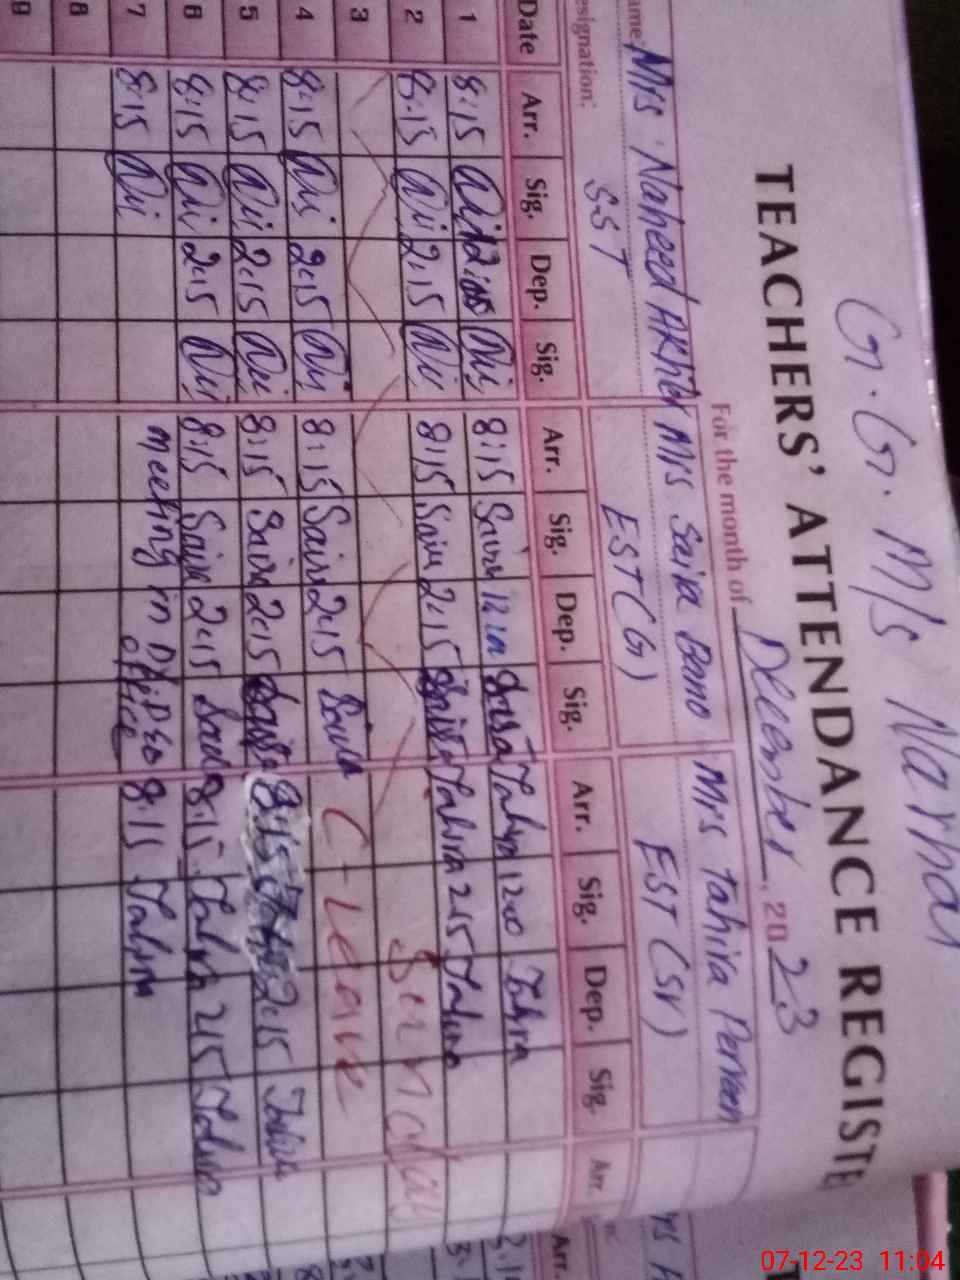 G. G. M/S Narhal
TEACHERS' ATTENDANCE REGISTE
For the month of December 2023
ame: Mrs. Naheed Akhter Mrs Saira Bano Mrs Tahira Perveen
esignation: SST EST (G) EST (SV)
Date Arr. Sig. Dep. Sig. Arr. Sig. Dep. Sig. Arr. Sig. Dep. Sig. Arr.
1 8:15 8:15 Saira Tahira 1200 Tahira
2 8:15 2:15 8:15 Saira 2:15 Saira Tahira 215 Tahira
3 Sunday
4 8:15 2:15 8:15 Saira 2:15 Saira C-Leave
5 8:15 2:15 8:15 Saira 2:15 Saira 8:15 Tahira 2:15 Tahira
6 8:15 2:15 8:15 Saira 2:15 Saira 8:15 Tahira 215 Tahira
7 8:15 meeting in Dy:DEO office 8:15 Tahira
8
9
07-12-23 11:04